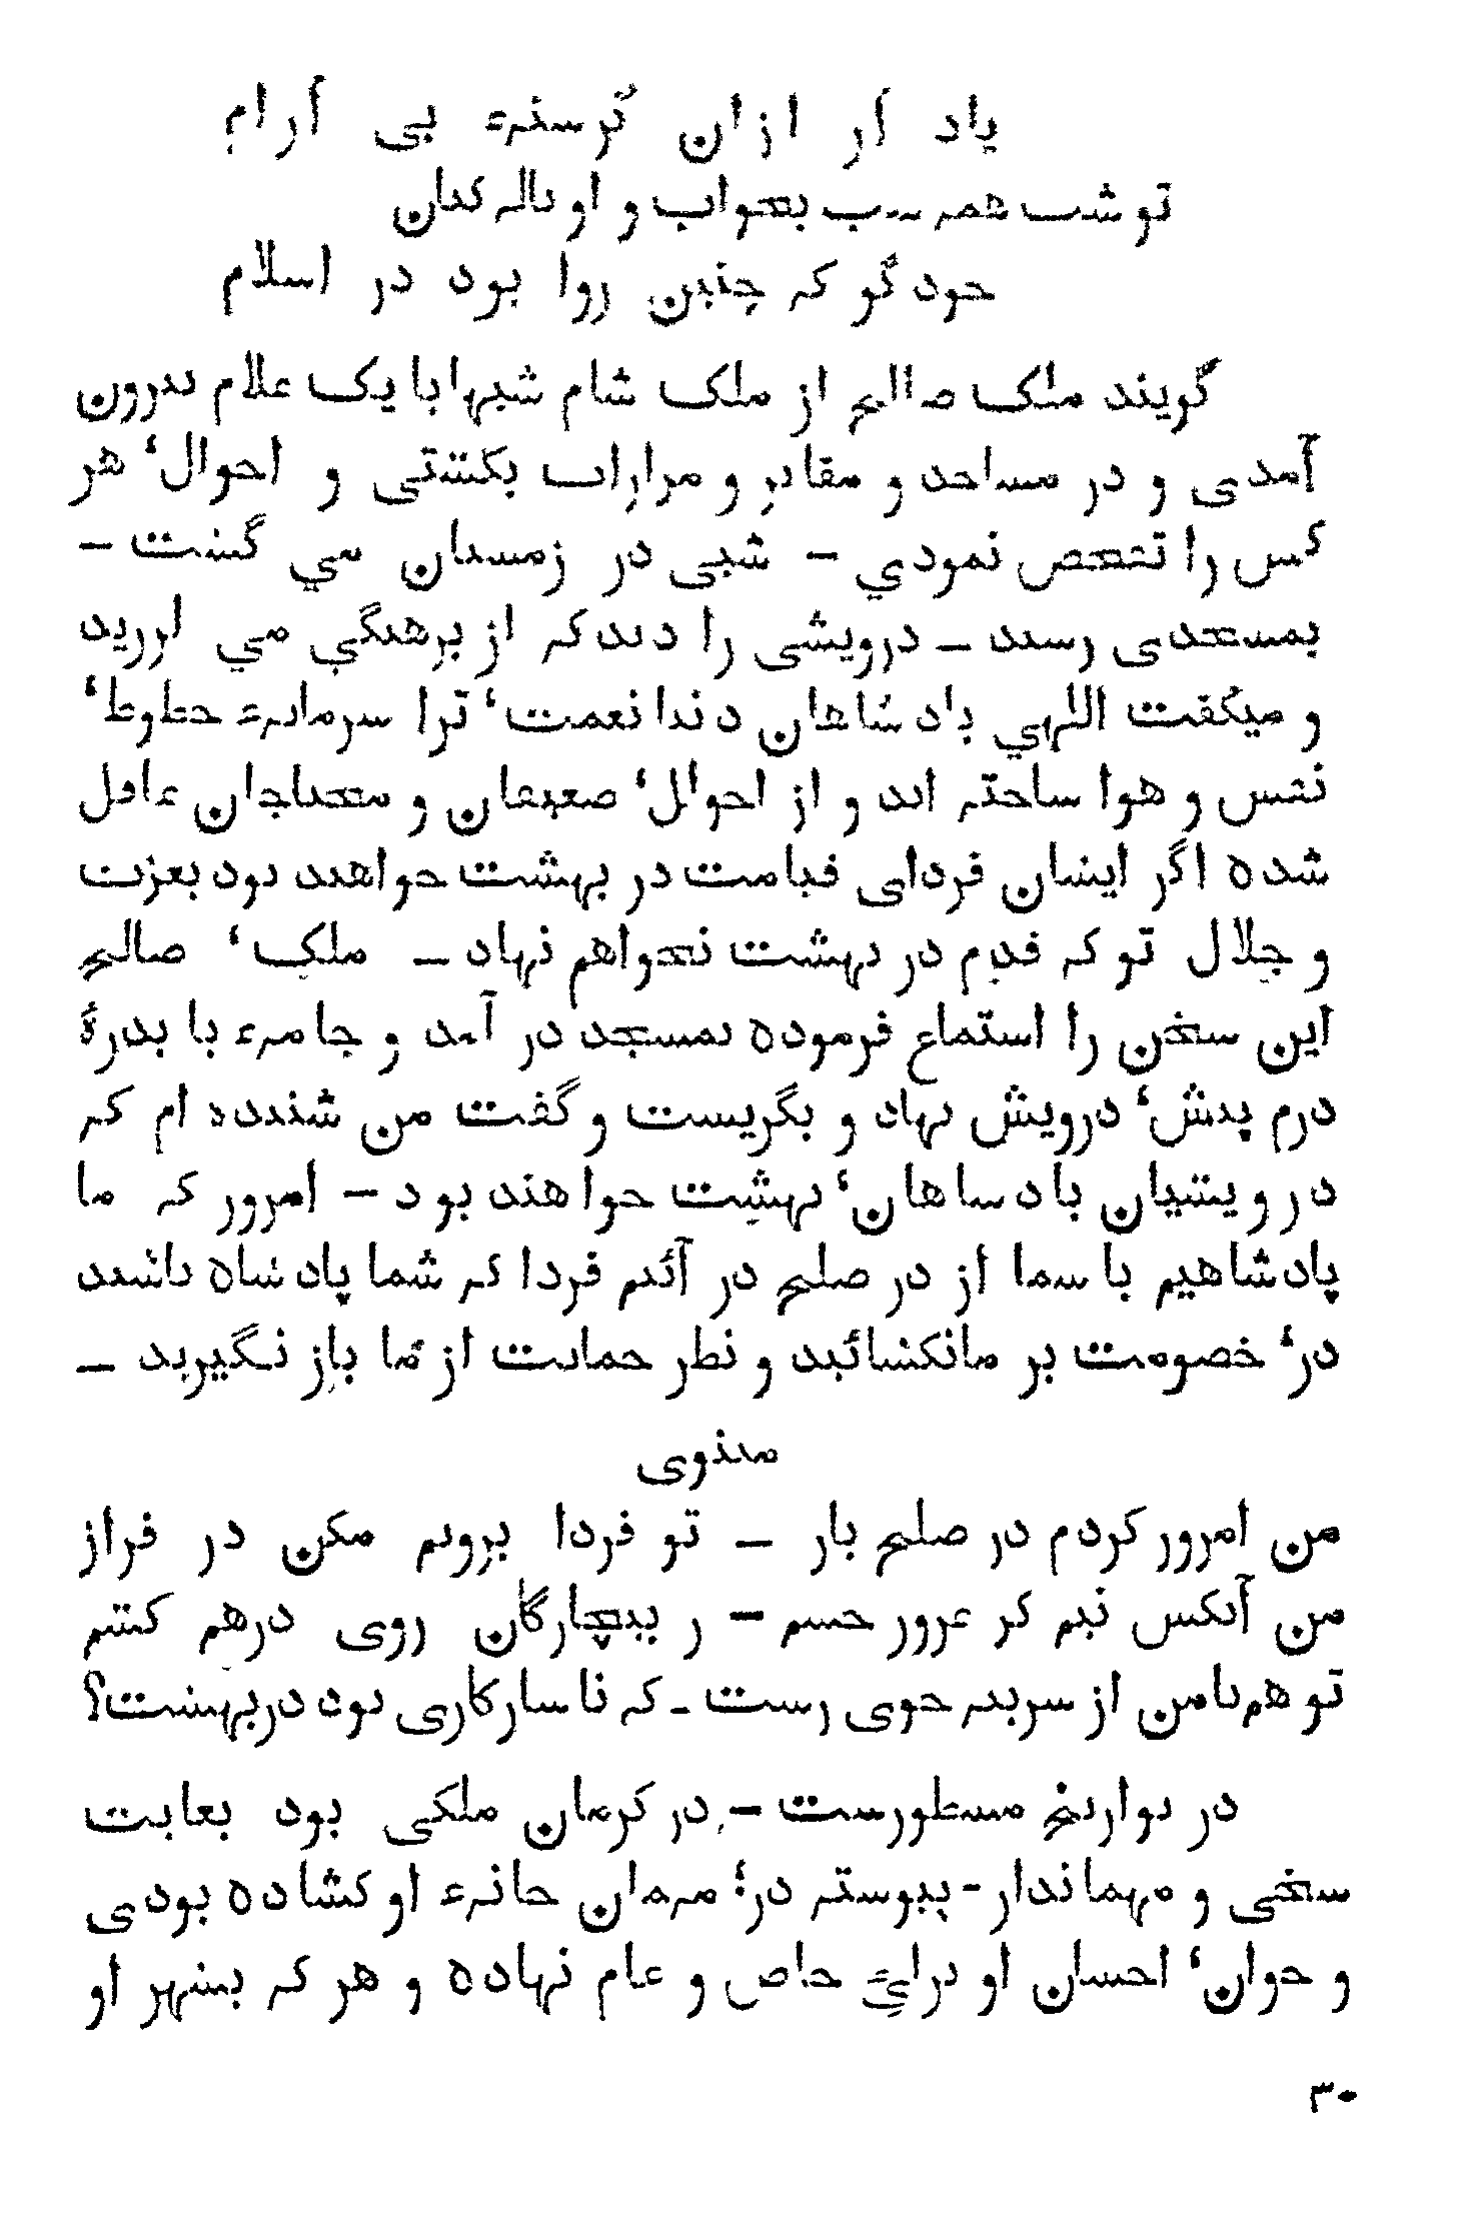 یاد آر ازان گرسنهٔ بی آرام
تو شب همه شب بخواب و او ناله کنان
خود گو که چنین روا بود در اسلام
گویند ملک صالح از ملک شام شبها با یک غلام بیرون
آمدی و در مساجد و مقابر و مزارات بگشتی و احوال‘ هر
کس را تفحص نمودي – شبی در زمستان مي گشت –
بمسجدی رسید – درویشی را دید که از برهنگي مي لرزید
و میگفت الٰهي پادشاهان دنیا نعمت‘ ترا سرمایهٔ حظوظ‘
نفس و هوا ساخته اند و از احوال‘ ضعیفان و محتاجان غافل
شده اگر ایشان فردای قیامت در بهشت خواهند بود بعزت
و جلال تو که قدم در بهشت نخواهم نهاد – ملک‘ صالح
این سخن را استماع فرموده بمسجد در آمد و جامهٔ با بدرهٔ
درم پیش‘ درویش نهاد و بگریست و گفت من شنیده ام که
درویشان پادشاهان‘ بهشت خواهند بود – امروز که ما
پادشاهیم با شما از در صلح در آئیم فردا که شما پادشاه باشید
در‘ خصومت بر ما نکشائید و نظر حمایت از ما باز نگیرید –
مثنوی
من امروز کردم در صلح باز – تو فردا برویم مکن در فراز
من آنکس نیم کز غرور حشم – ز بیچارگان روی درهم کشم
تو هم با من از سر بنه خوی زشت - که نا سازکاری بود در بهشت؟
در تواریخ مسطورست – در کرمان ملکی بود بغایت
سخی و مهماندار - پیوسته در‘ مهمان خانهٔ او کشاده بودی
و خوان‘ احسان او برایٔ خاص و عام نهاده و هر که بشهر او
۳۰